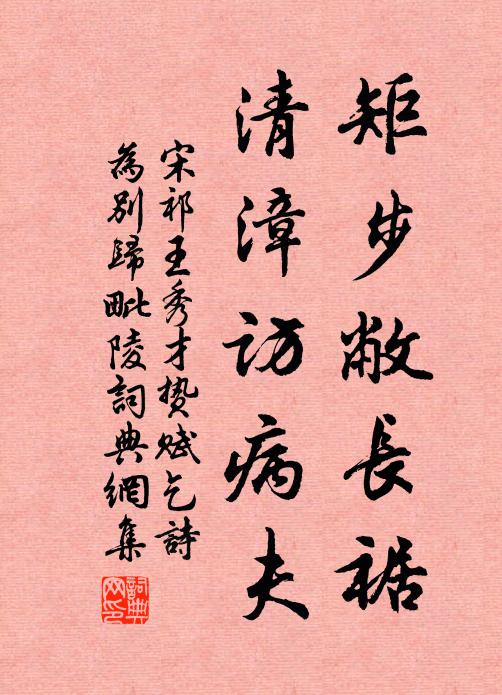 矩步敝長裾
清漳訪病夫
宋祁王秀才贄賦乞詩
為別歸毗陵詞典網集
詞典網印